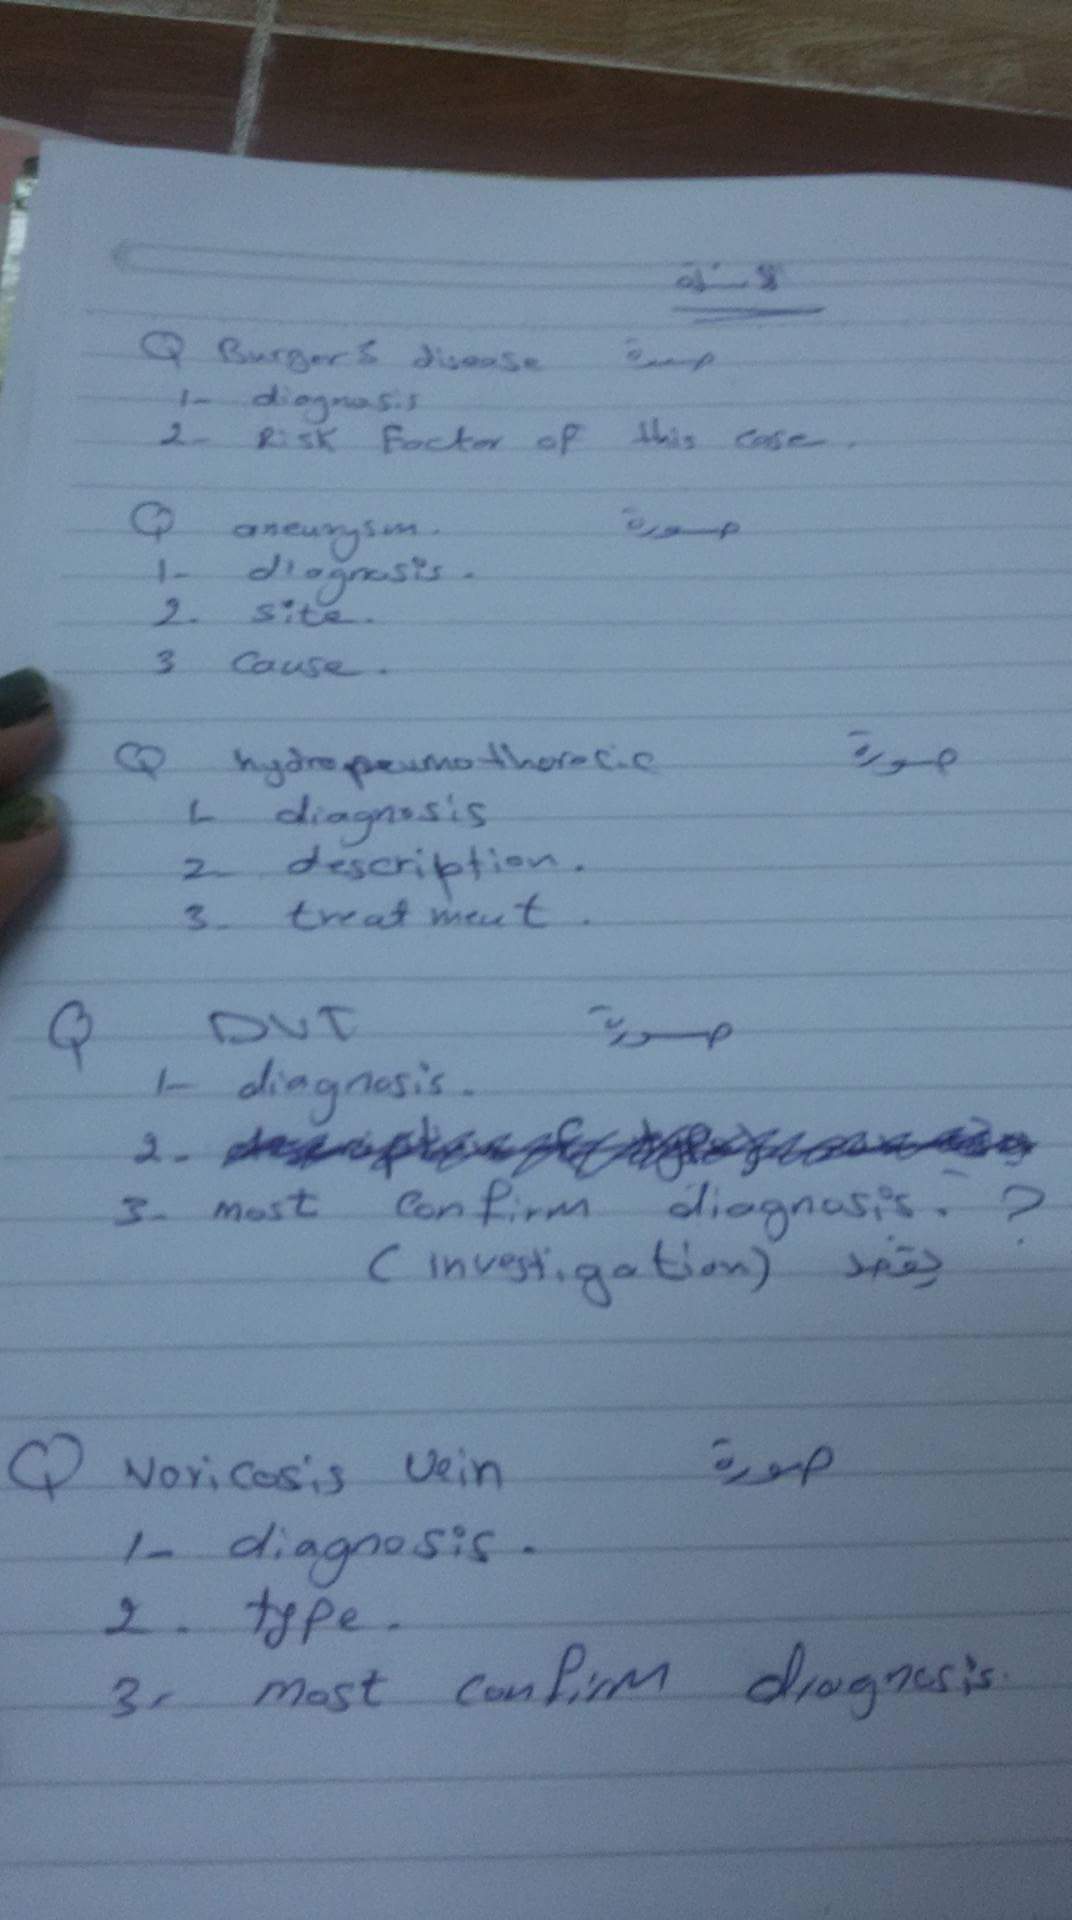 Q Burger's disease صورة
1- diagnosis
2- Risk Factor of this case.
Q aneurysm. صورة
1- diagnosis.
2. site.
3 Cause.
Q hydropeumothoracic صورة
1- diagnosis
2- description.
3- treatment.
Q DVT صورة
1- diagnosis.
2-
3- most confirm diagnosis. ?
(investigation)
Q Varicosis Vein صورة
1- diagnosis.
2. type.
3. most confirm diagnosis.